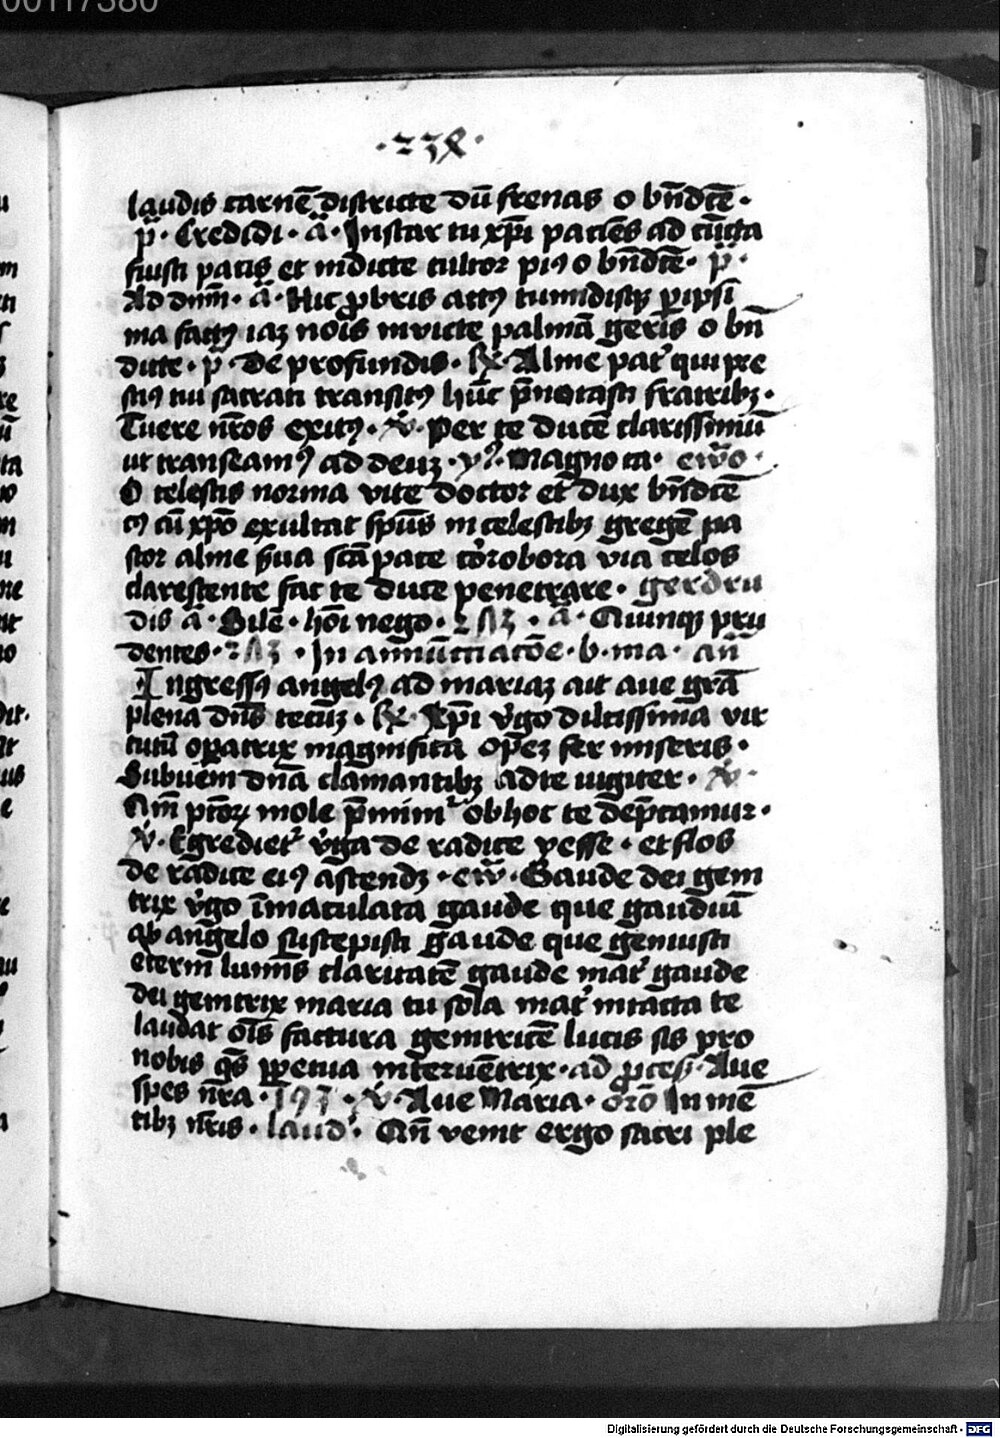 00117380
·23x·
laudis carnē districte dū frenas o bn̄dcē·
p̄· Credidi· ā· Instar tu xp̄i paciēs ad cūcta
fuisti pacis et indicte cultor pius o bn̄dcē· p̄·
Ad dnm̄· ā· Hic ꝓbris actꝰ tumidisqꝫ
ma factꝰ iaꝫ nōis invicte palmā geris o bn̄
dicte· p̄· De profundis· ℟· Alme pat̉ qui pre
stiꝰ tui sacrati transitꝰ hūc p̄notasti fratribꝫ·
Tuere nr̄os exitꝰ· ℣· Per te ducē clarissimū
ut transeamꝰ ad deuꝫ· ympꝰ· Magno ca· ew̄o·
O celestis norma vite doctor et dux bn̄dcē
cꝰ cū xp̄o exultat sp̄us in celestibꝫ gregē pa
stor alme s̉ua scā p̉ce cōrobora via celos
clarescente fac te duce penetrare· gerdru
dis ā· Silē· hōi nego· 2Λ3· ā· Quinqꝫ pru
dentes· 2Λ3 · In annūciacōe· b· ma· an̄
Ingressꝰ angelꝰ ad mariaꝫ ait ave grā
plena dn̄s tecuꝫ· ℟· Xp̄i v̉go dilcissima vir
tutū oꝑatrix magnifica opeꝫ fer miseris·
Subveni dn̄a clamantibꝫ ad te iugiter· ℣·
Qm̄ pctōꝝ mole p̄mim̉ ob hoc te dep̄camur·
℣· Egrediet̉ v̉ga de radice yesse· et flos
de radice eiꝰ ascendꝫ· ew̄· Gaude dei geni
trix v̉go īmaculata gaude que gaudiū
ab angelo suscepisti gaude que genuisti
eterni luminis claritatē gaude mat̉ gaude
dei genitrix maria tu sola mat̉ intacta te
laudat ōis factura genitricē lucis sis pro
nobis qs̄ ꝑpetua intervētrix· ad ꝓcess· Ave
spes nr̄a· 193 · ℣· Ave Maria· orō In mē
tibꝫ nr̄is· laud̉· An̄ venit ergo sacri ple
Digitalisierung gefördert durch die Deutsche Forschungsgemeinschaft · DFG